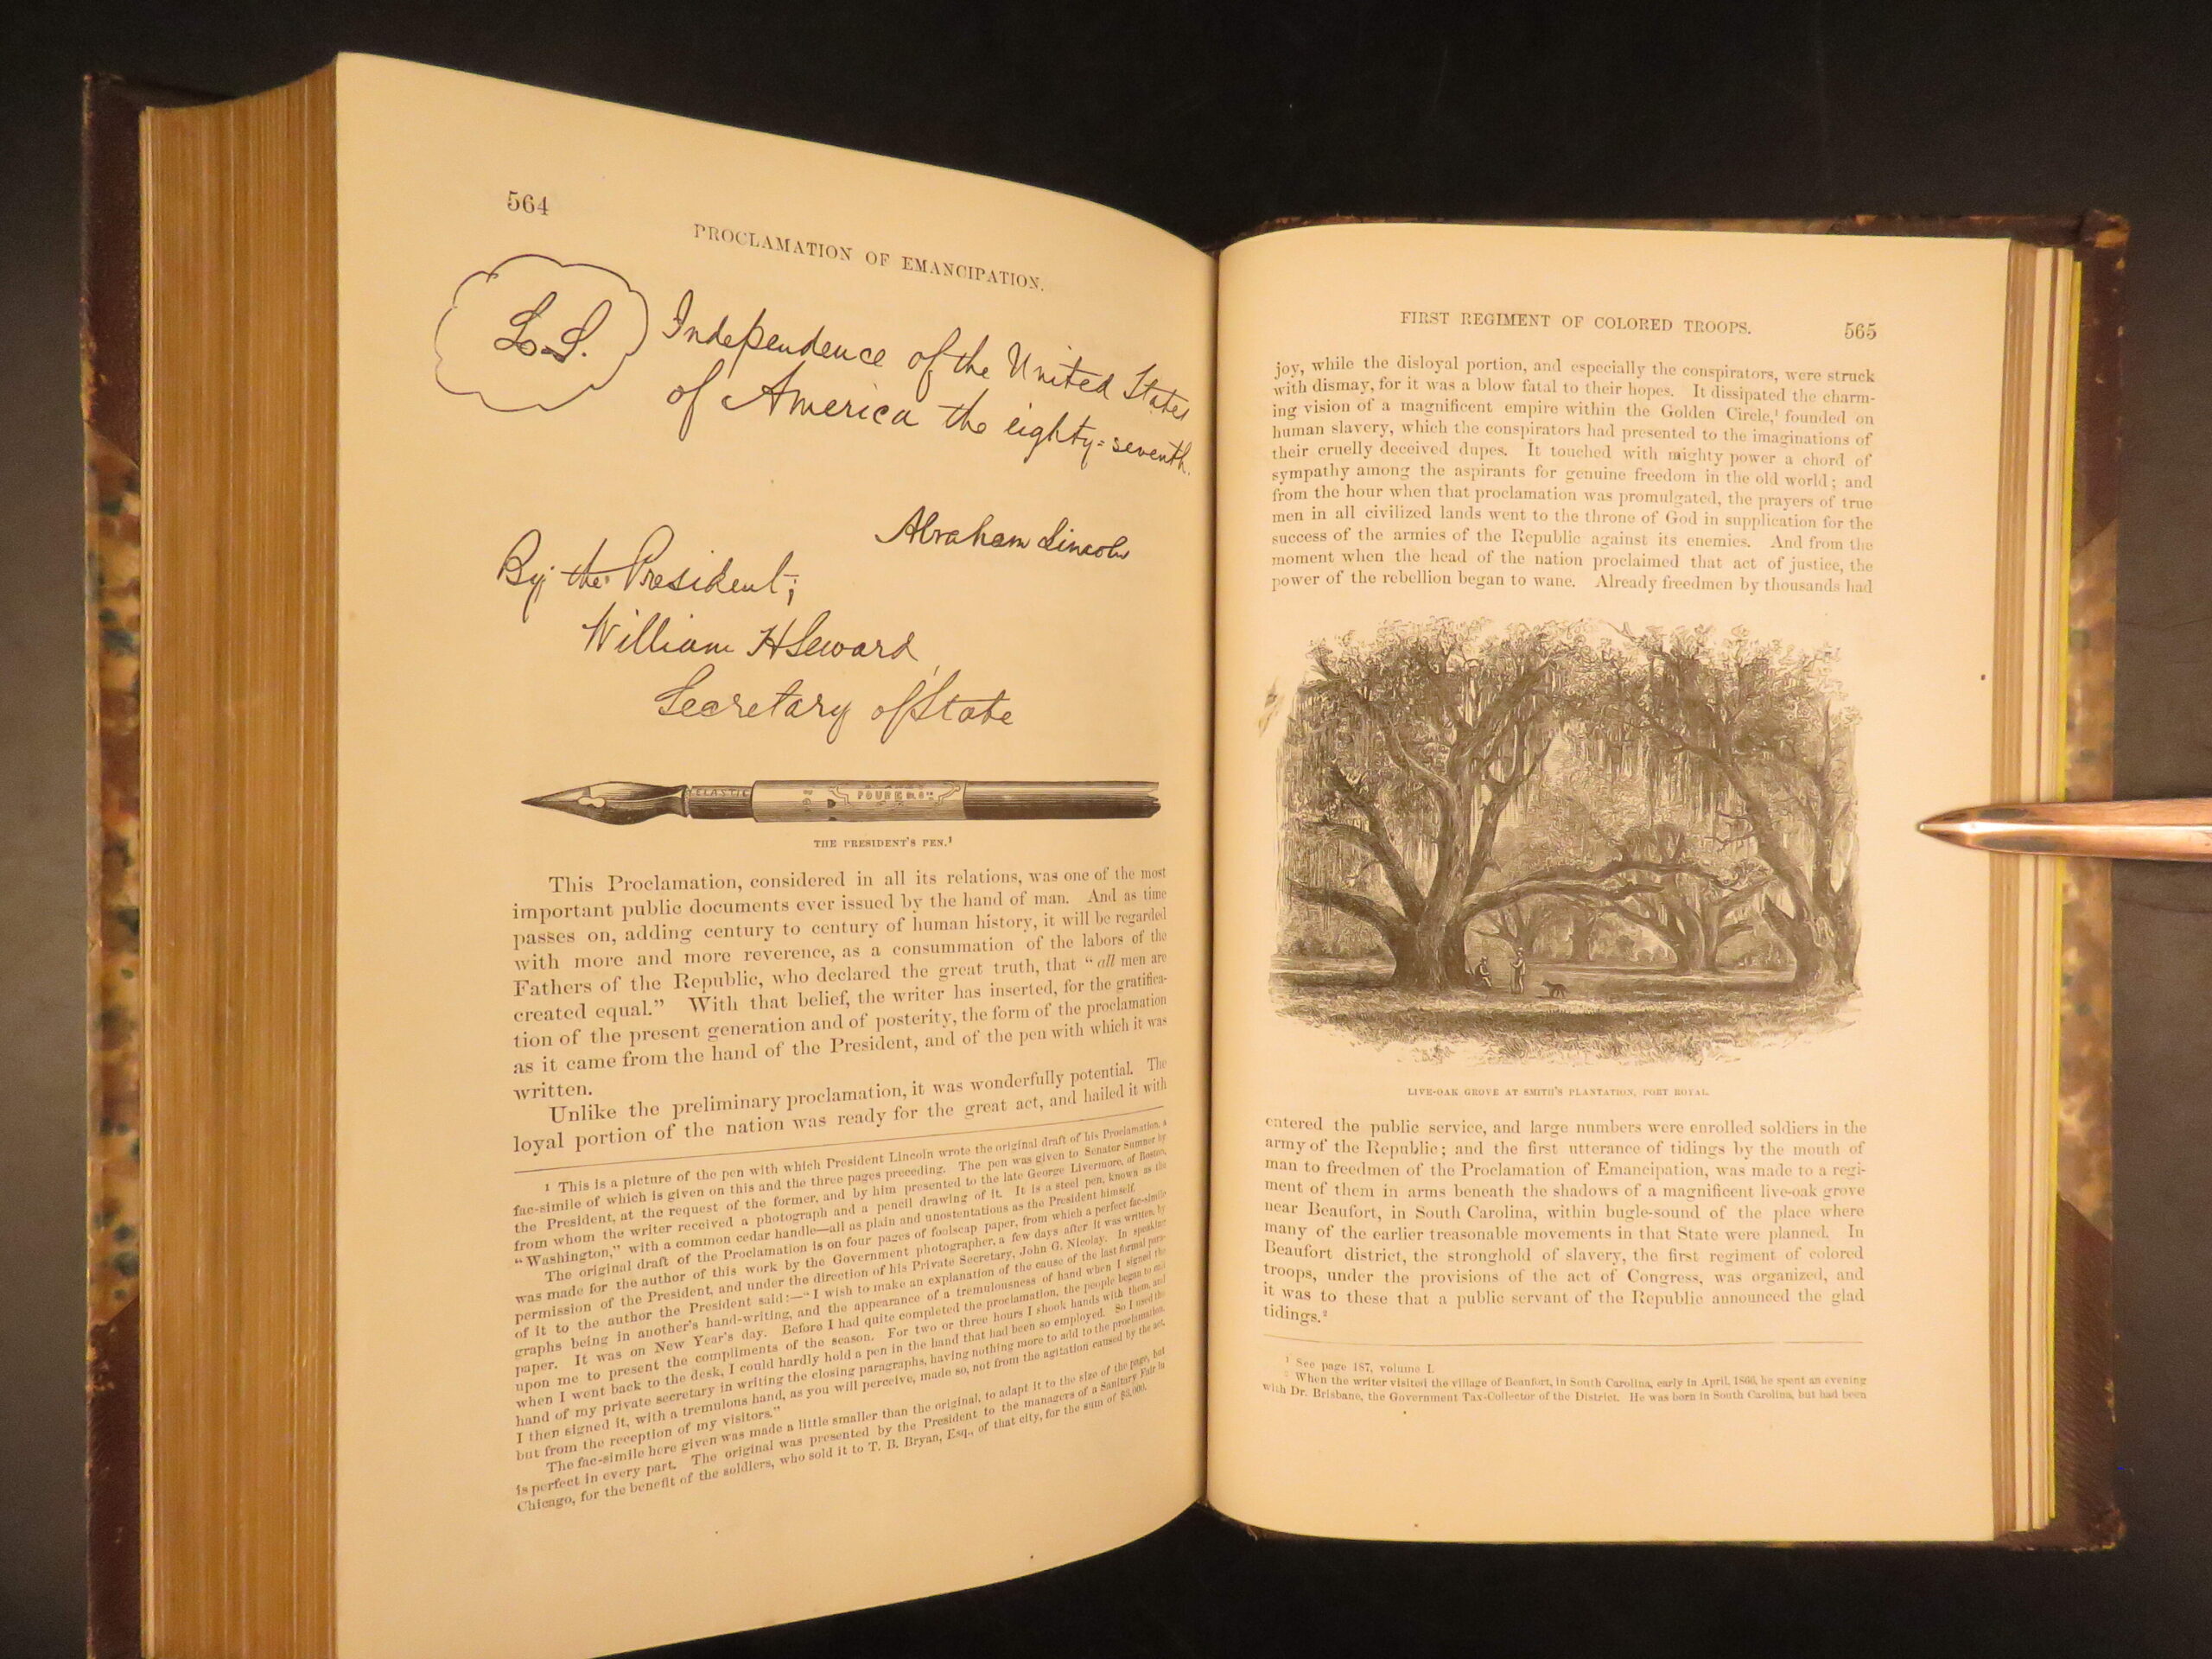 564
PROCLAMATION OF EMANCIPATION.
L.S.
Independence of the United States
of America the eighty-seventh.
Abraham Lincoln
By the President;
William H Seward,
Secretary of State
ELASTIC
THE PRESIDENT'S PEN.¹
This Proclamation, considered in all its relations, was one of the most
important public documents ever issued by the hand of man. And as time
passes on, adding century to century of human history, it will be regarded
with more and more reverence, as a consummation of the labors of the
Fathers of the Republic, who declared the great truth, that “all men are
created equal.” With that belief, the writer has inserted, for the gratifica-
tion of the present generation and of posterity, the form of the proclamation
as it came from the hand of the President, and of the pen with which it was
written.
Unlike the preliminary proclamation, it was wonderfully potential. The
loyal portion of the nation was ready for the great act, and hailed it with
¹ This is a picture of the pen with which President Lincoln wrote the original draft of his Proclamation, a
fac-simile of which is given on this and the three pages preceding. The pen was given to Senator Sumner by
the President, at the request of the former, and by him presented to the late George Livermore, of Boston,
from whom the writer received a photograph and a pencil drawing of it. It is a steel pen, known as the
“Washington,” with a common cedar handle—all as plain and unostentatious as the President himself.
The original draft of the Proclamation is on four pages of foolscap paper, from which a perfect fac-simile
was made for the author of this work by the Government photographer, a few days after it was written, by
permission of the President, and under the direction of his Private Secretary, John G. Nicolay. In speaking
of it to the author the President said:—“I wish to make an explanation of the cause of the last formal para-
graphs being in another's hand-writing, and the appearance of a tremulousness of hand when I signed the
paper. It was on New Year's day. Before I had quite completed the proclamation, the people began to call
upon me to present the compliments of the season. For two or three hours I shook hands with them, and
when I went back to the desk, I could hardly hold a pen in the hand that had been so employed. So I used the
hand of my private secretary in writing the closing paragraphs, having nothing more to add to the proclamation.
I then signed it, with a tremulous hand, as you will perceive, made so, not from the agitation caused by the act,
but from the reception of my visitors.”
The fac-simile here given was made a little smaller than the original, to adapt it to the size of the page, but
is perfect in every part. The original was presented by the President to the managers of a Sanitary Fair in
Chicago, for the benefit of the soldiers, who sold it to T. B. Bryan, Esq., of that city, for the sum of $3,000.
FIRST REGIMENT OF COLORED TROOPS. 565
joy, while the disloyal portion, and especially the conspirators, were struck
with dismay, for it was a blow fatal to their hopes. It dissipated the charm-
ing vision of a magnificent empire within the Golden Circle,¹ founded on
human slavery, which the conspirators had presented to the imaginations of
their cruelly deceived dupes. It touched with mighty power a chord of
sympathy among the aspirants for genuine freedom in the old world; and
from the hour when that proclamation was promulgated, the prayers of true
men in all civilized lands went to the throne of God in supplication for the
success of the armies of the Republic against its enemies. And from the
moment when the head of the nation proclaimed that act of justice, the
power of the rebellion began to wane. Already freedmen by thousands had
LIVE-OAK GROVE AT SMITH'S PLANTATION, PORT ROYAL.
entered the public service, and large numbers were enrolled soldiers in the
army of the Republic; and the first utterance of tidings by the mouth of
man to freedmen of the Proclamation of Emancipation, was made to a regi-
ment of them in arms beneath the shadows of a magnificent live-oak grove
near Beaufort, in South Carolina, within bugle-sound of the place where
many of the earlier treasonable movements in that State were planned. In
Beaufort district, the stronghold of slavery, the first regiment of colored
troops, under the provisions of the act of Congress, was organized, and
it was to these that a public servant of the Republic announced the glad
tidings.²
¹ See page 187, volume I.
² When the writer visited the village of Beaufort, in South Carolina, early in April, 1866, he spent an evening
with Dr. Brisbane, the Government Tax-Collector of the District. He was born in South Carolina, but had been